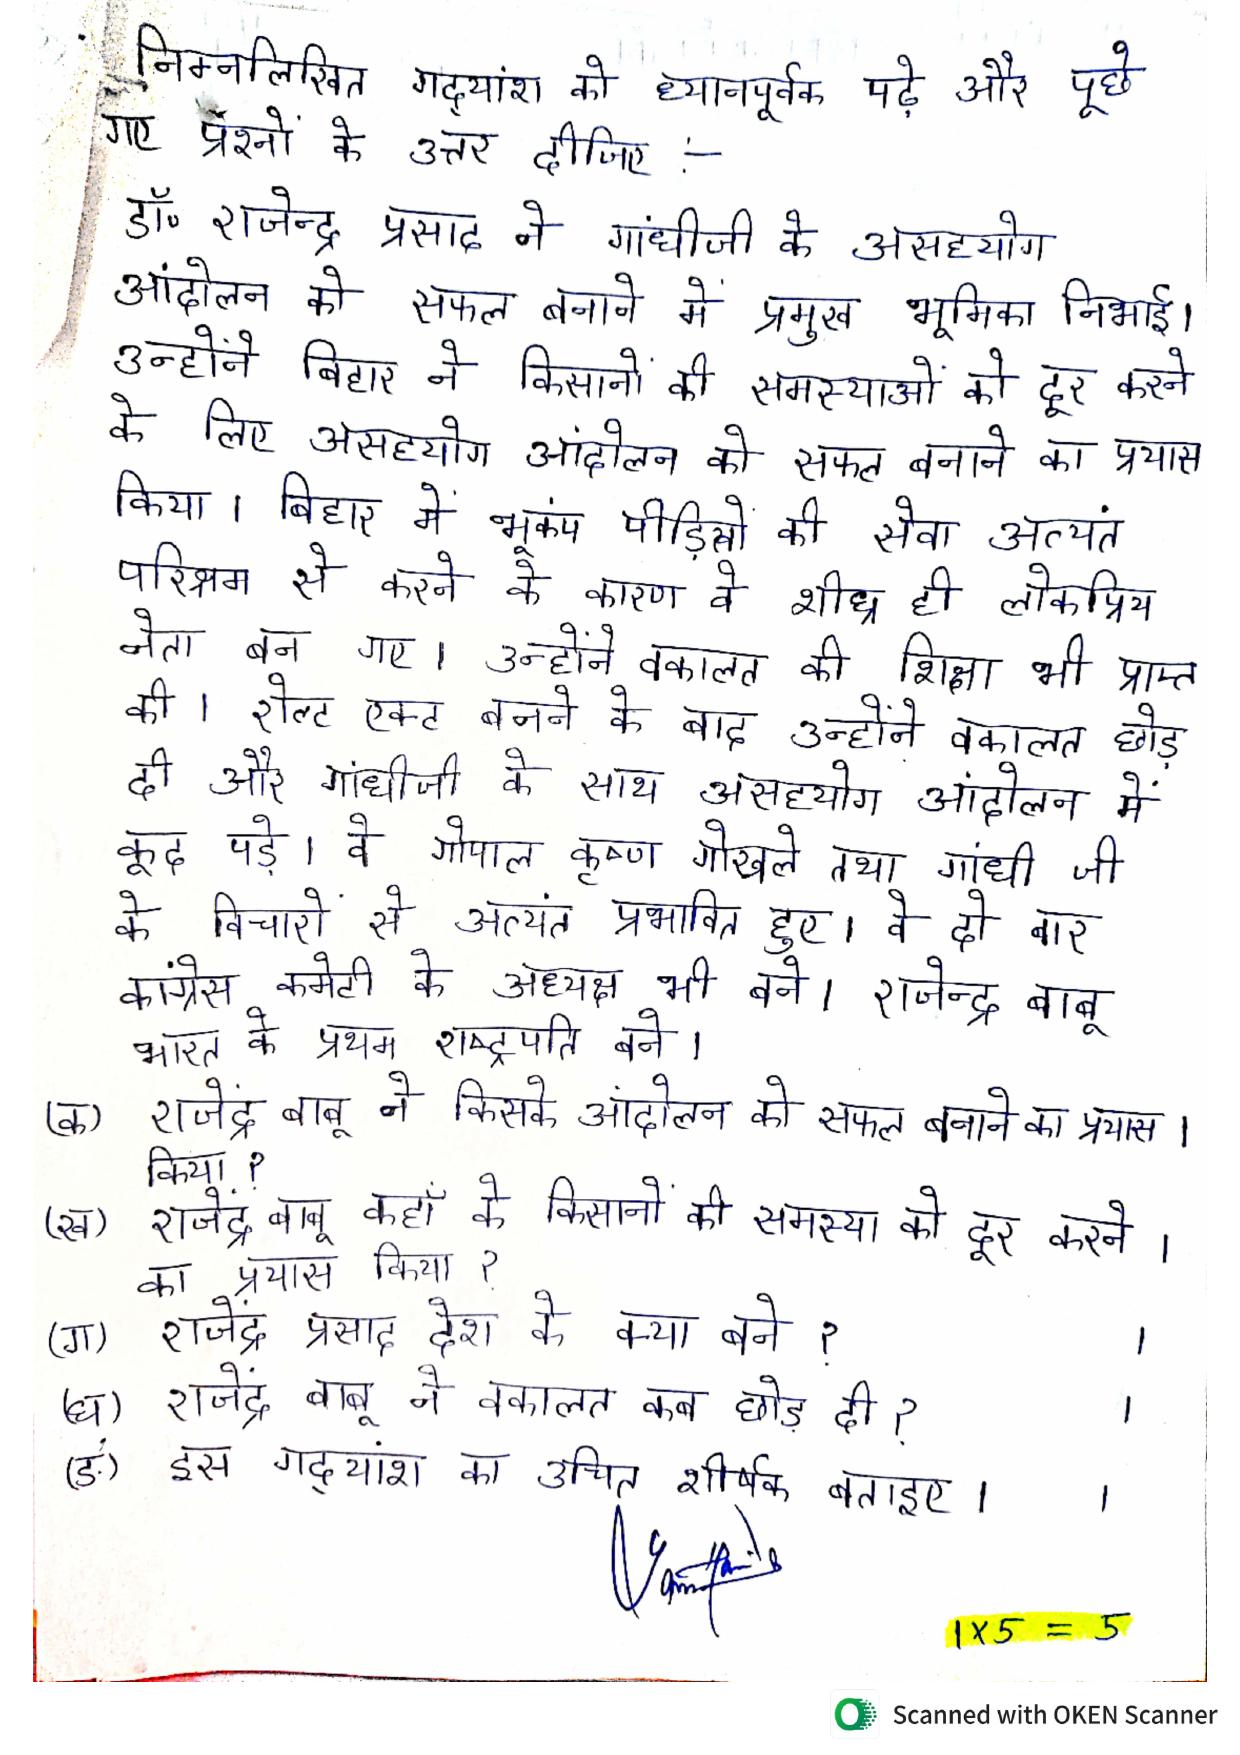 निम्नलिखित गद्यांश को ध्यानपूर्वक पढ़े और पूछे
गए प्रश्नों के उत्तर दीजिए :-
डॉ॰ राजेन्द्र प्रसाद ने गांधीजी के असहयोग
आंदोलन को सफल बनाने में प्रमुख भूमिका निभाई।
उन्होंने बिहार ने किसानों की समस्याओं को दूर करने
के लिए असहयोग आंदोलन को सफल बनाने का प्रयास
किया। बिहार में भूकंप पीड़ितों की सेवा अत्यंत
परिश्रम से करने के कारण वे शीघ्र ही लोकप्रिय
नेता बन गए। उन्होंने वकालत की शिक्षा भी प्राप्त
की। रोल्ट एक्ट बनने के बाद उन्होंने वकालत छोड़
दी और गांधीजी के साथ असहयोग आंदोलन में
कूद पड़े। वे गोपाल कृष्ण गोखले तथा गांधी जी
के विचारों से अत्यंत प्रभावित हुए। वे दो बार
कांग्रेस कमेटी के अध्यक्ष भी बने। राजेन्द्र बाबू
भारत के प्रथम राष्ट्रपति बने।
(क) राजेंद्र बाबू ने किसके आंदोलन को सफल बनाने का प्रयास 1
किया?
(ख) राजेंद्र बाबू कहाँ के किसानों की समस्या को दूर करने 1
का प्रयास किया?
(ग) राजेंद्र प्रसाद देश के क्या बने? 1
(घ) राजेंद्र बाबू ने वकालत कब छोड़ दी? 1
(ङ) इस गद्यांश का उचित शीर्षक बताइए। 1
1×5 = 5
Scanned with OKEN Scanner